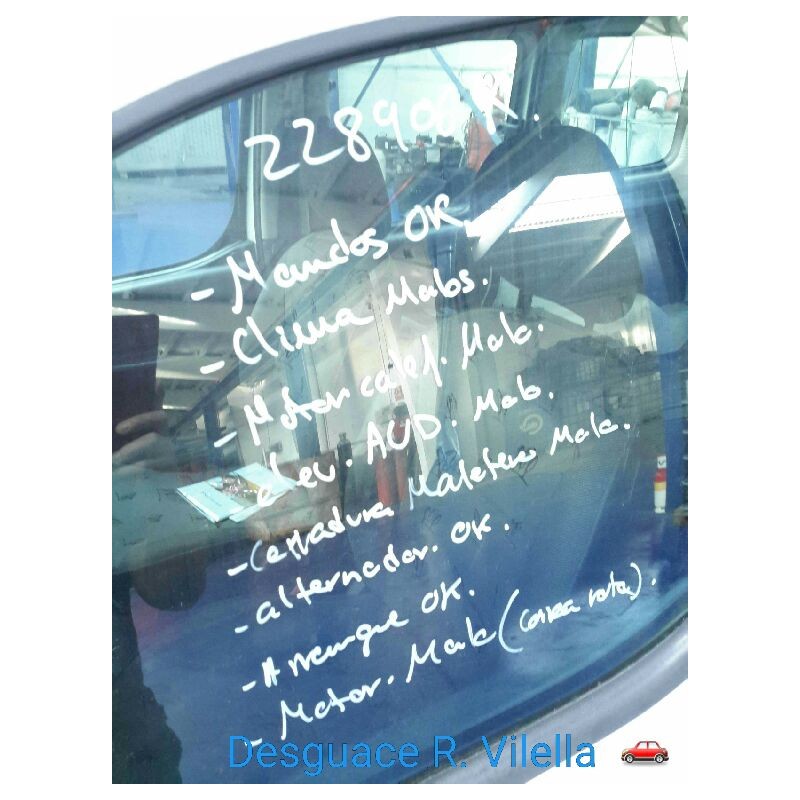 228906R.
- Mandos OK
- Clima Malos.
- Motor calef. Malo.
elev. AUD. Malo.
- Cerradura Maletero Malo.
- alternador. OK.
- Arranque OK.
- Motor. Malo (correa rota).
Desguace R. Vilella